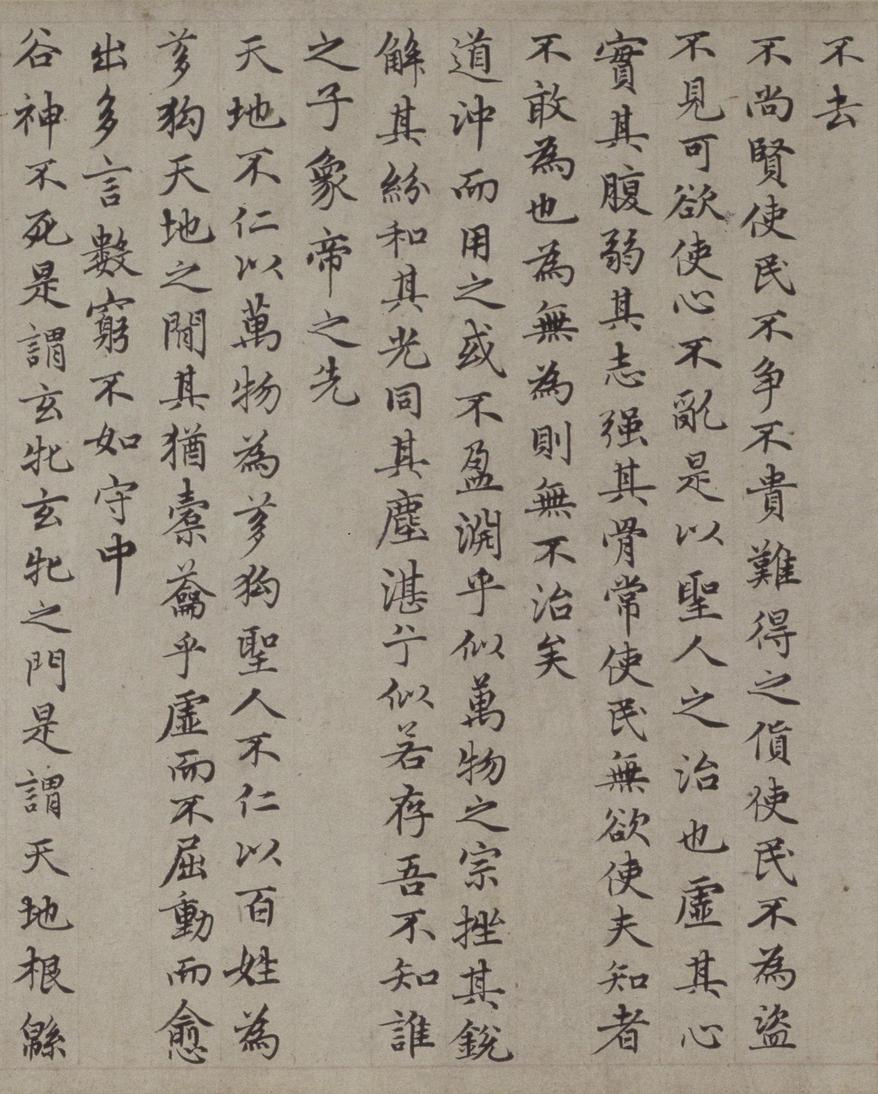 不去
不尚賢使民不争不貴難得之貨使民不為盜
不見可欲使心不亂是以聖人之治也虛其心
實其腹弱其志强其骨常使民無欲使夫知者
不敢為也為無為則無不治矣
道沖而用之或不盈淵乎似萬物之宗挫其銳
解其紛和其光同其塵湛兮似若存吾不知誰
之子象帝之先
天地不仁以萬物為芻狗聖人不仁以百姓為
芻狗天地之閒其猶橐籥乎虛而不屈動而愈
出多言數窮不如守中
谷神不死是謂玄牝玄牝之門是謂天地根緜